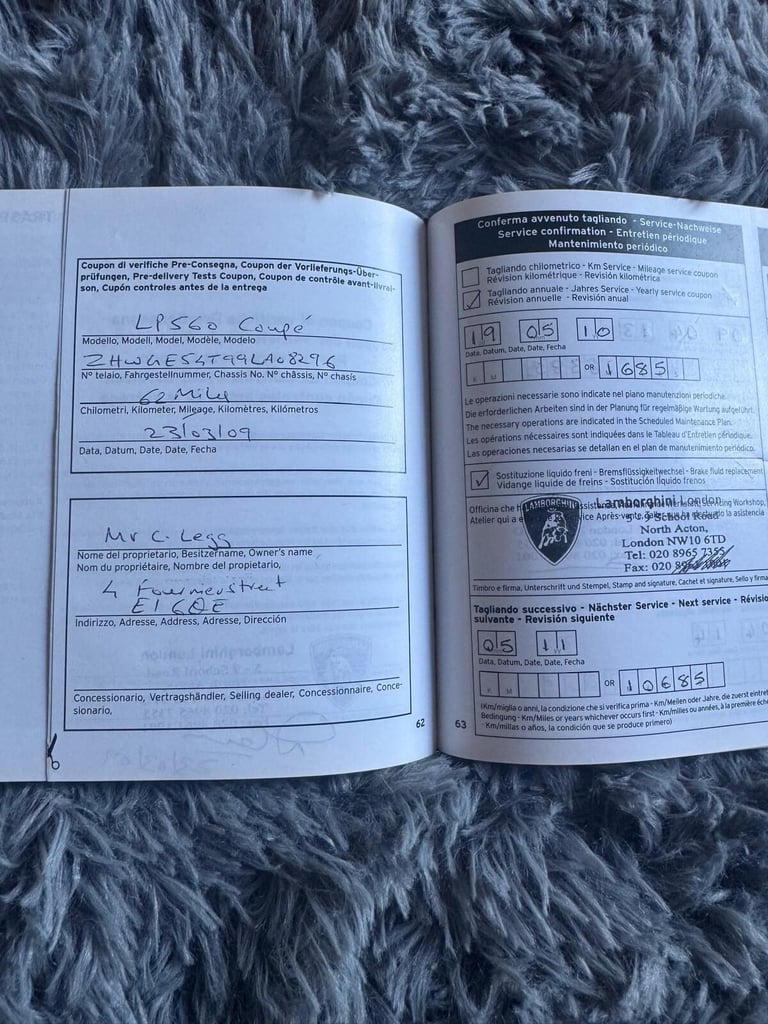 Coupon di verifiche Pre-Consegna, Coupon der Vorlieferungs-Über-
prüfungen, Pre-delivery Tests Coupon, Coupon de contrôle avant-livrai-
son, Cupón controles antes de la entrega
LP560 Coupé
Modello, Modell, Model, Modèle, Modelo
ZHWGE54T99LA08296
N° telaio, Fahrgestellnummer, Chassis No. N° châssis, N° chasis
62 Miles
Chilometri, Kilometer, Mileage, Kilomètres, Kilómetros
23/03/09
Data, Datum, Date, Date, Fecha
Mr C. Legg
Nome del proprietario, Besitzername, Owner's name
Nom du propriétaire, Nombre del propietario,
4 Fournier street
E1 6QE
Indirizzo, Adresse, Address, Adresse, Dirección
Concessionario, Vertragshändler, Selling dealer, Concessionnaire, Conce-
sionario,
62
Conferma avvenuto tagliando - Service-Nachweise
Service confirmation - Entretien périodique
Mantenimiento periódico
Tagliando chilometrico - Km Service - Mileage service coupon
Révision kilométrique - Revisión kilométrica
Tagliando annuale - Jahres Service - Yearly service coupon
Révision annuelle - Revisión anual
19 05 10
Data, Datum, Date, Date, Fecha
K M OR 1685
Le operazioni necessarie sono indicate nel piano manutenzioni periodiche.
Die erforderlichen Arbeiten sind in der Planung für regelmäßige Wartung aufgeführt.
The necessary operations are indicated in the Scheduled Maintenance Plan.
Les opérations nécessaires sont indiquées dans le Tableau d'Entretien périodique.
Las operaciones necesarias se detallan en el plan de manutenimiento periódico.
Sostituzione liquido freni - Bremsflüssigkeitwechsel - Brake fluid replacement
Vidange liquide de freins - Sustitución líquido frenos
Officina che Servicing Workshop,
Atelier qui a Service Après-vente la asistencia
LAMBORGHINI
Lamborghini London
5 - 9 School Road
North Acton,
London NW10 6TD
Tel: 020 8965 7355
Fax: 020
Timbro e firma, Unterschrift und Stempel, Stamp and signature, Cachet et signature, Sello y firma
Tagliando successivo - Nächster Service - Next service - Révision
suivante - Revisión siguiente
05 11
Data, Datum, Date, Date, Fecha
K M OR 10685
(Km/miglia o anni, la condizione che si verifica prima - Km/Meilen oder Jahre, die zuerst eintret
Bedingung - Km/Miles or years whichever occurs first - Km/milles ou années, à la première éché
- Km/millas o años, la condición que se produce primero)
63